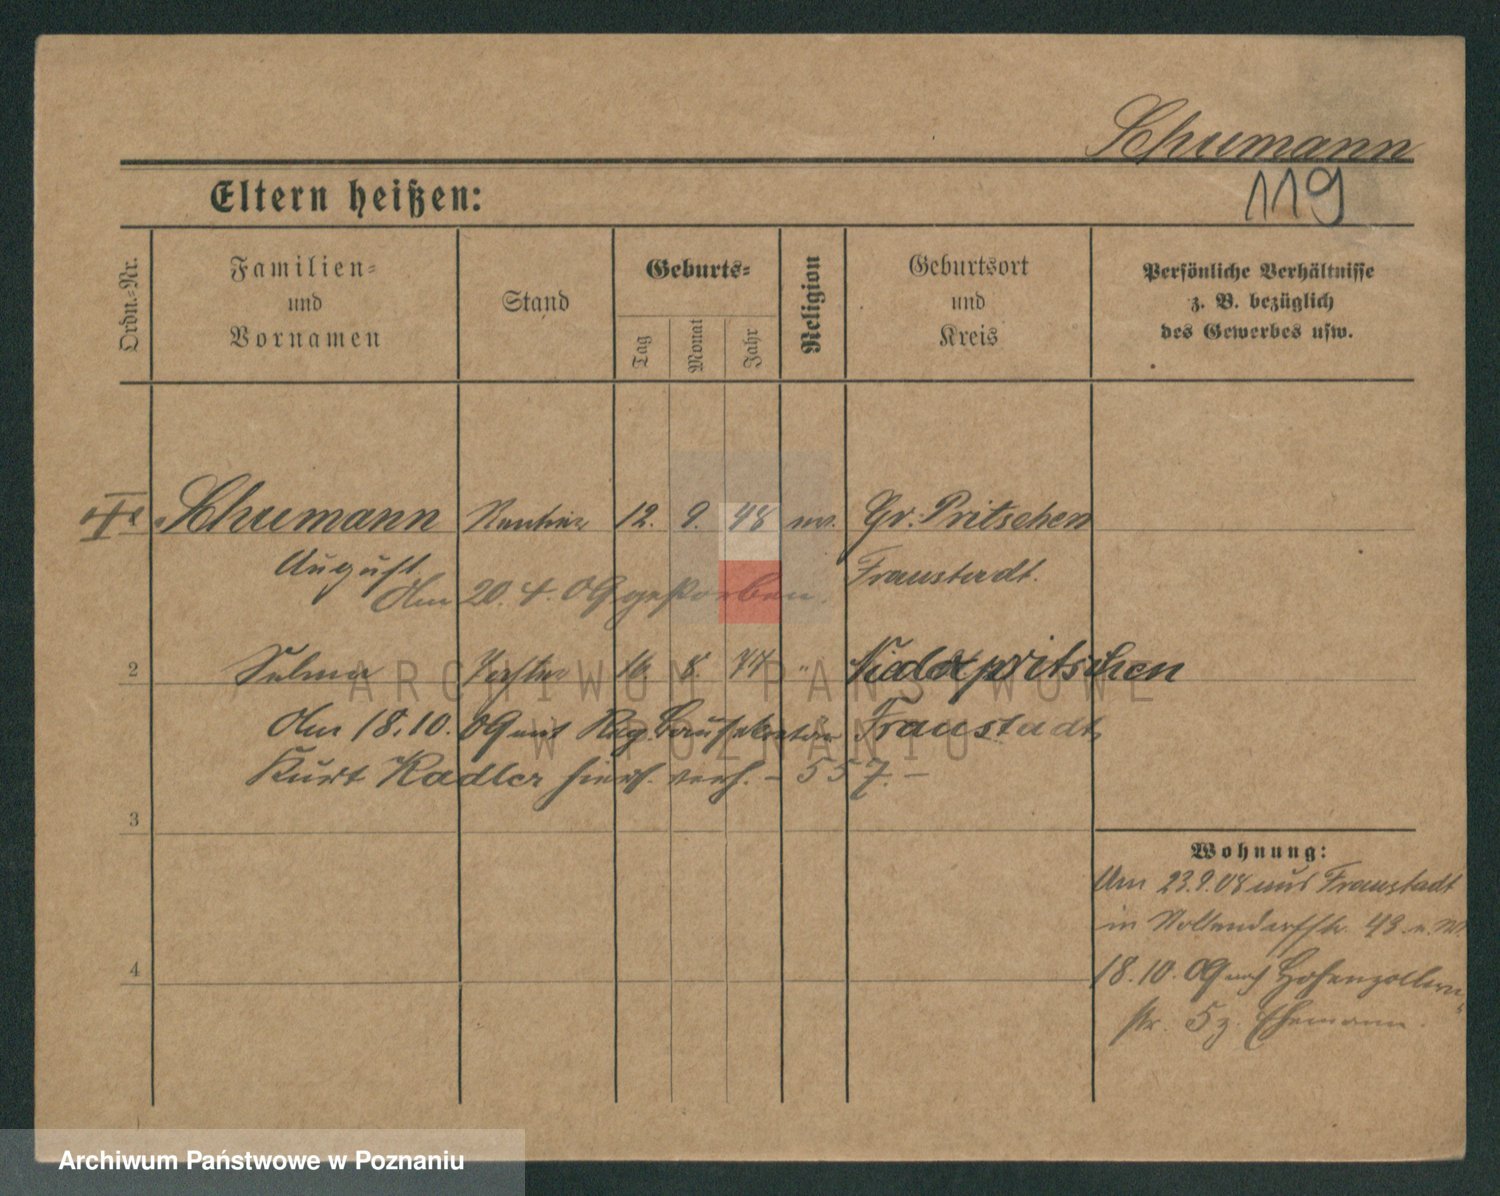 Schumann
119
Eltern heißen:
Ordn.-Nr.
Familien-
und
Vornamen
Stand
Geburts-
Tag
Monat
Jahr
Religion
Geburtsort
und
Kreis
Persönliche Verhältnisse
z. B. bezüglich
des Gewerbes usw.
Schumann Rentier 12. 9. 48 ev. Gr. Pritschen
August Fraustadt.
Am 20. 4. 09 gestorben.
2 Selma Tochter 16. 8. 77 " Niederpritschen
Am 18.10. 09 mit Reg. Bausekretär Fraustadt
Kurt Kadler hierf. verh. – 557. –
3
4
Wohnung:
Am 23.9.08 aus Fraustadt
in Nollendorfstr. 43
18.10.09 nach Hohenzollern-
str. 5 z. Ehemann.
ARCHIWUM PAŃSTWOWE
W POZNANIU
Archiwum Państwowe w Poznaniu